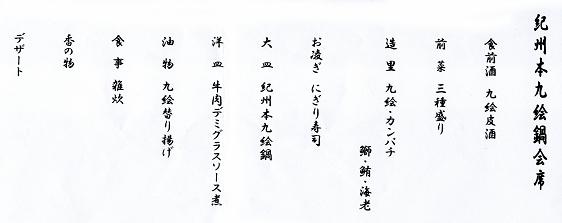 紀州本九絵鍋会席
食前酒 九絵皮酒
前菜 三種盛り
造里 九絵・カンパチ
鰤・鮪・海老
お凌ぎ にぎり寿司
大皿 紀州本九絵鍋
洋皿 牛肉デミグラスソース煮
油物 九絵替り揚げ
食事 雑炊
香の物
デザート